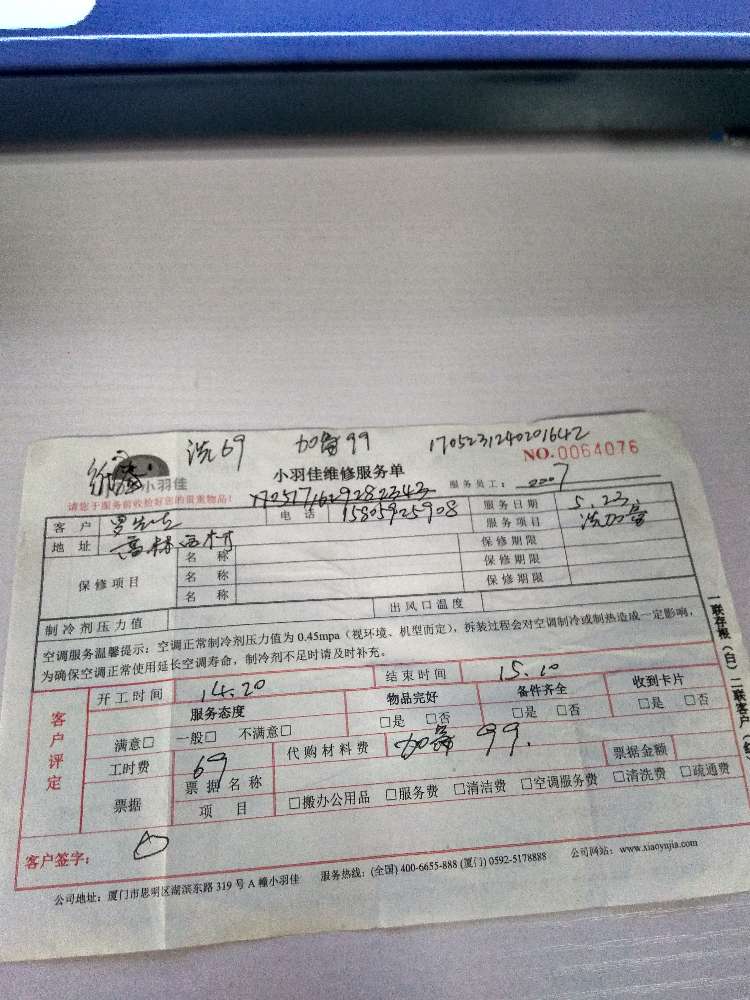 洗69 加雪99 1705231240201642
小羽佳 小羽佳维修服务单 NO.0064076
请您于服务前收拾好您的贵重物品! 1705171629282343 服务员工:
客户 罗先生 电话 15805925908 服务日期 5.23
地址 高林西村 服务项目 洗加雪
保修项目 名称 保修期限
名称 保修期限
名称 保修期限
制冷剂压力值 出风口温度
空调服务温馨提示:空调正常制冷剂压力值为 0.45mpa(视环境、机型而定),拆装过程会对空调制冷或制热造成一定影响,
为确保空调正常使用延长空调寿命,制冷剂不足时请及时补充。
一联存根(白)二联客户
客户评定
开工时间 14.20 结束时间 15.10
服务态度 物品完好 备件齐全 收到卡片
满意□ 一般□ 不满意□ □是 □否 □是 □否 □是 □否
工时费 69 代购材料费 加雪 99. 票据金额
票据 票据名称
项目 □搬办公用品 □服务费 □清洁费 □空调服务费 □清洗费 □疏通费
客户签字:
公司地址:厦门市思明区湖滨东路 319 号 A 幢小羽佳 服务热线:(全国) 400-6655-888 (厦门) 0592-5178888 公司网站:www.xiaoyujia.com